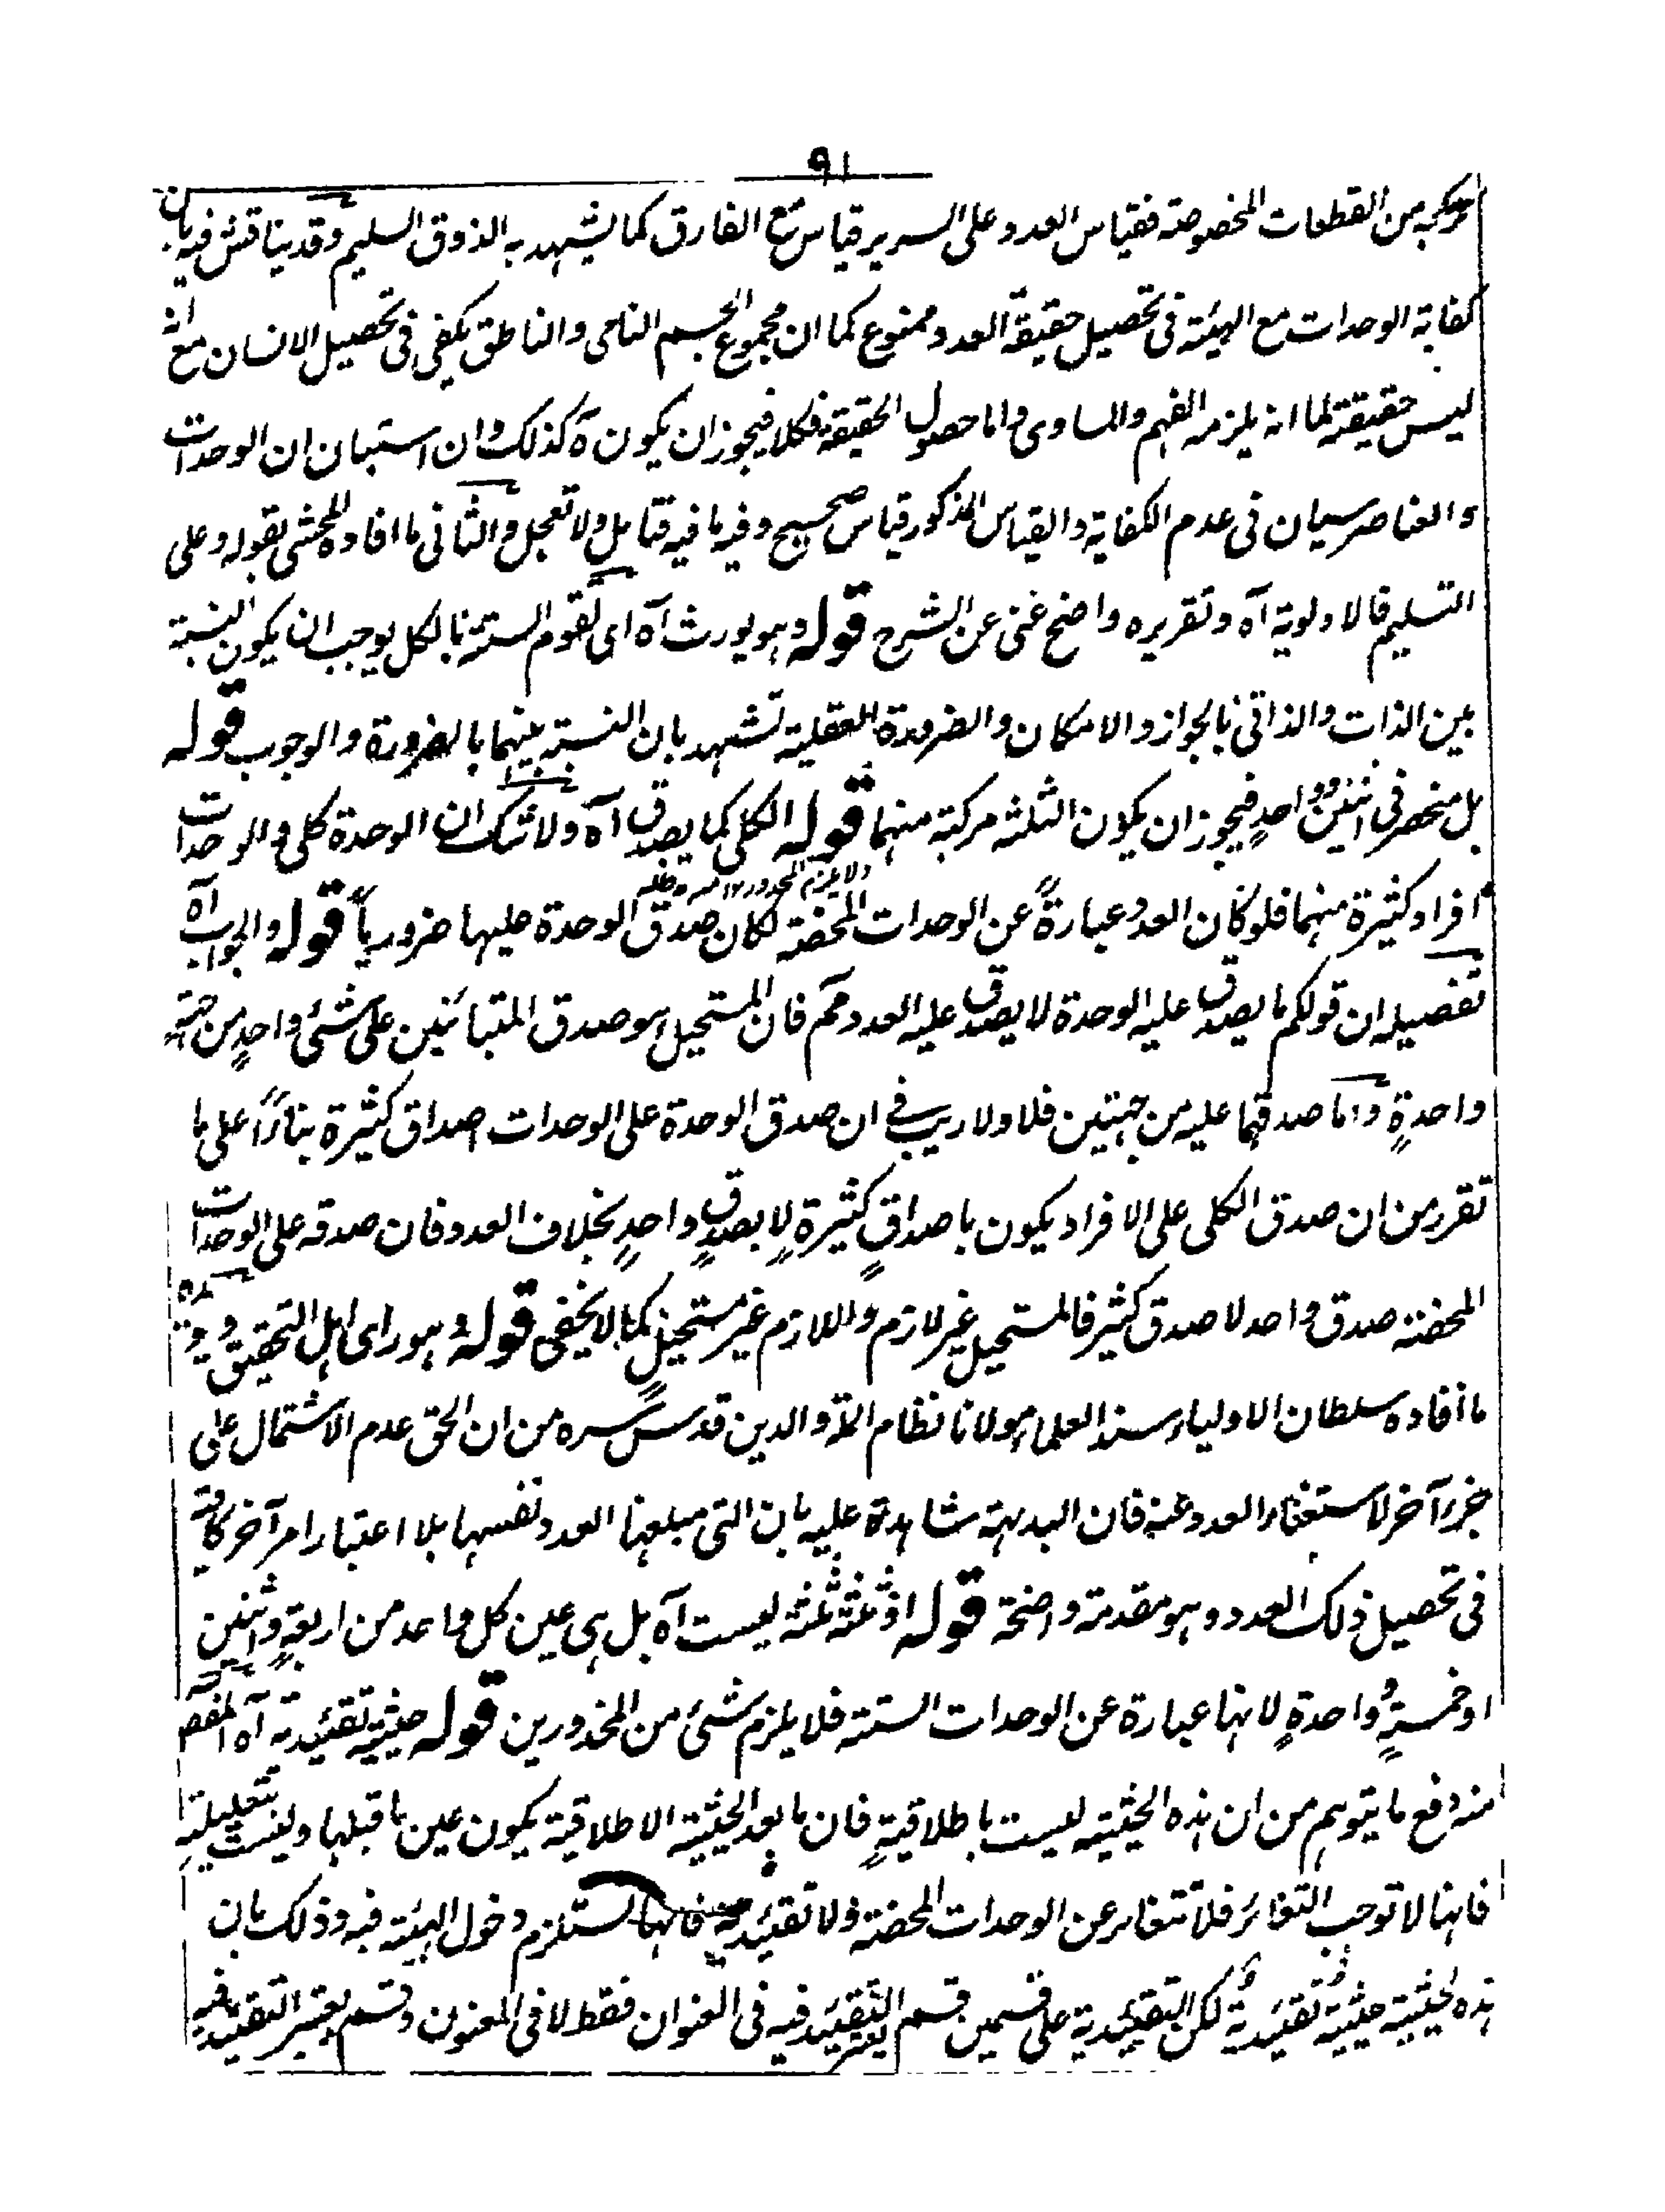 ٩١
مركبة من القطعات المخصوصة فقياس العدد على السرير قياس مع الفارق كما يشهد به الذوق السليم وقد يناقش فيه بان
كفاية الوحدات مع الهيئة فى تحصيل حقيقة العدد ممنوع كما ان مجموع الجسم النامى والناطق يكفى فى تحصيل الانسان مع انه
ليس حقيقة لما انه يلزمه الفهم والمساوى واما حصول الحقيقة فكلا فيجوز ان يكون ه كذلك وان استبان ان الوحدات
والعناصر سيان فى عدم الكفاية والقياس المذكور قياس صحيح وفيه ما فيه فتامل ولا تعجل والثانى ما افاده المحشى بقوله وعلى
التسليم فالاولوية آه وتقريره واضح غنى عن الشرح قوله وهو يورث آه اى تقوم الستة بالكل يوجب ان يكون النسبة
بين الذات والذاتى بالجواز والامكان والضرورة العقلية تشهد بان النسبة بينهما بالضرورة والوجوب قوله
بل منحصر فى اثنين وواحدٍ فيجوز ان يكون الثلثة مركبة منهما قوله الكلى كما يصدق آه ولا شك ان الوحدة كلى والوحدات
ولا يلزم المحذور ١٢ منه مدظله
افراد كثيرة منهما فلو كان العدد عبارةً عن الوحدات المحضة لكان صدق الوحدة عليها ضرورياً قوله والجواب آه
تفصيله ان قولكم ما يصدق عليه الوحدة لا يصدق عليه العدد مم فان المستحيل هو صدق المتبائنين على شئ واحدٍ من جهةٍ
واحدةٍ واما صدقهما عليه من جهتين فلا ولا ريب فى ان صدق الوحدة على الوحدات اصداق كثيرة بناءً على ما
تقرر من ان صدق الكلى على الافراد يكون باصداقٍ كثيرةٍ لا بصدقٍ واحدٍ بخلاف العدد فان صدقه على الوحدات
المحضة صدق واحد لا صدق كثير فالمستحيل غير لازم واللازم غير مستحيلٍ كما لا يخفى قوله وهو راى اهل التحقيق ويؤيده
ما افاده سلطان الاولياء سند العلماء مولانا نظام الملة والدين قدس سره من ان الحق عدم الاشتمال على
جزء آخر لاستغناء العدد عنه فان البديهة شاهدة عليه بان التى مبلغها العدد نفسها بلا اعتبار امر آخر كافية
فى تحصيل ذلك العدد وهو مقدمة واضحة قوله او ثلثة ثلثة ليست آه بل هى عين كل واحد من اربعةٍ واثنين
او خمسةٍ وواحدةٍ لانها عبارة عن الوحدات الستة فلا يلزم شئ من المحذورين قوله حيثية تقئيدية آه المقصود
منه دفع ما يتوهم من ان هذه الحيثية ليست باطلاقيةٍ فان ما بعد الحيثية الاطلاقية يكون عين ما قبلها وليست بتعليلية
فانها لا توجب التغائر فلا تتغاير عن الوحدات المحضة ولا تقئيدية فانها تستلزم دخول الهيئة فيه وذلك بان
هذه الحيثية حيثية تقئيدية لكن التقئيدية على قسمين قسم يعتبر التقئيد فيه فى العنوان فقط لا فى المعنون وقسم يعتبر التقئيد فيه